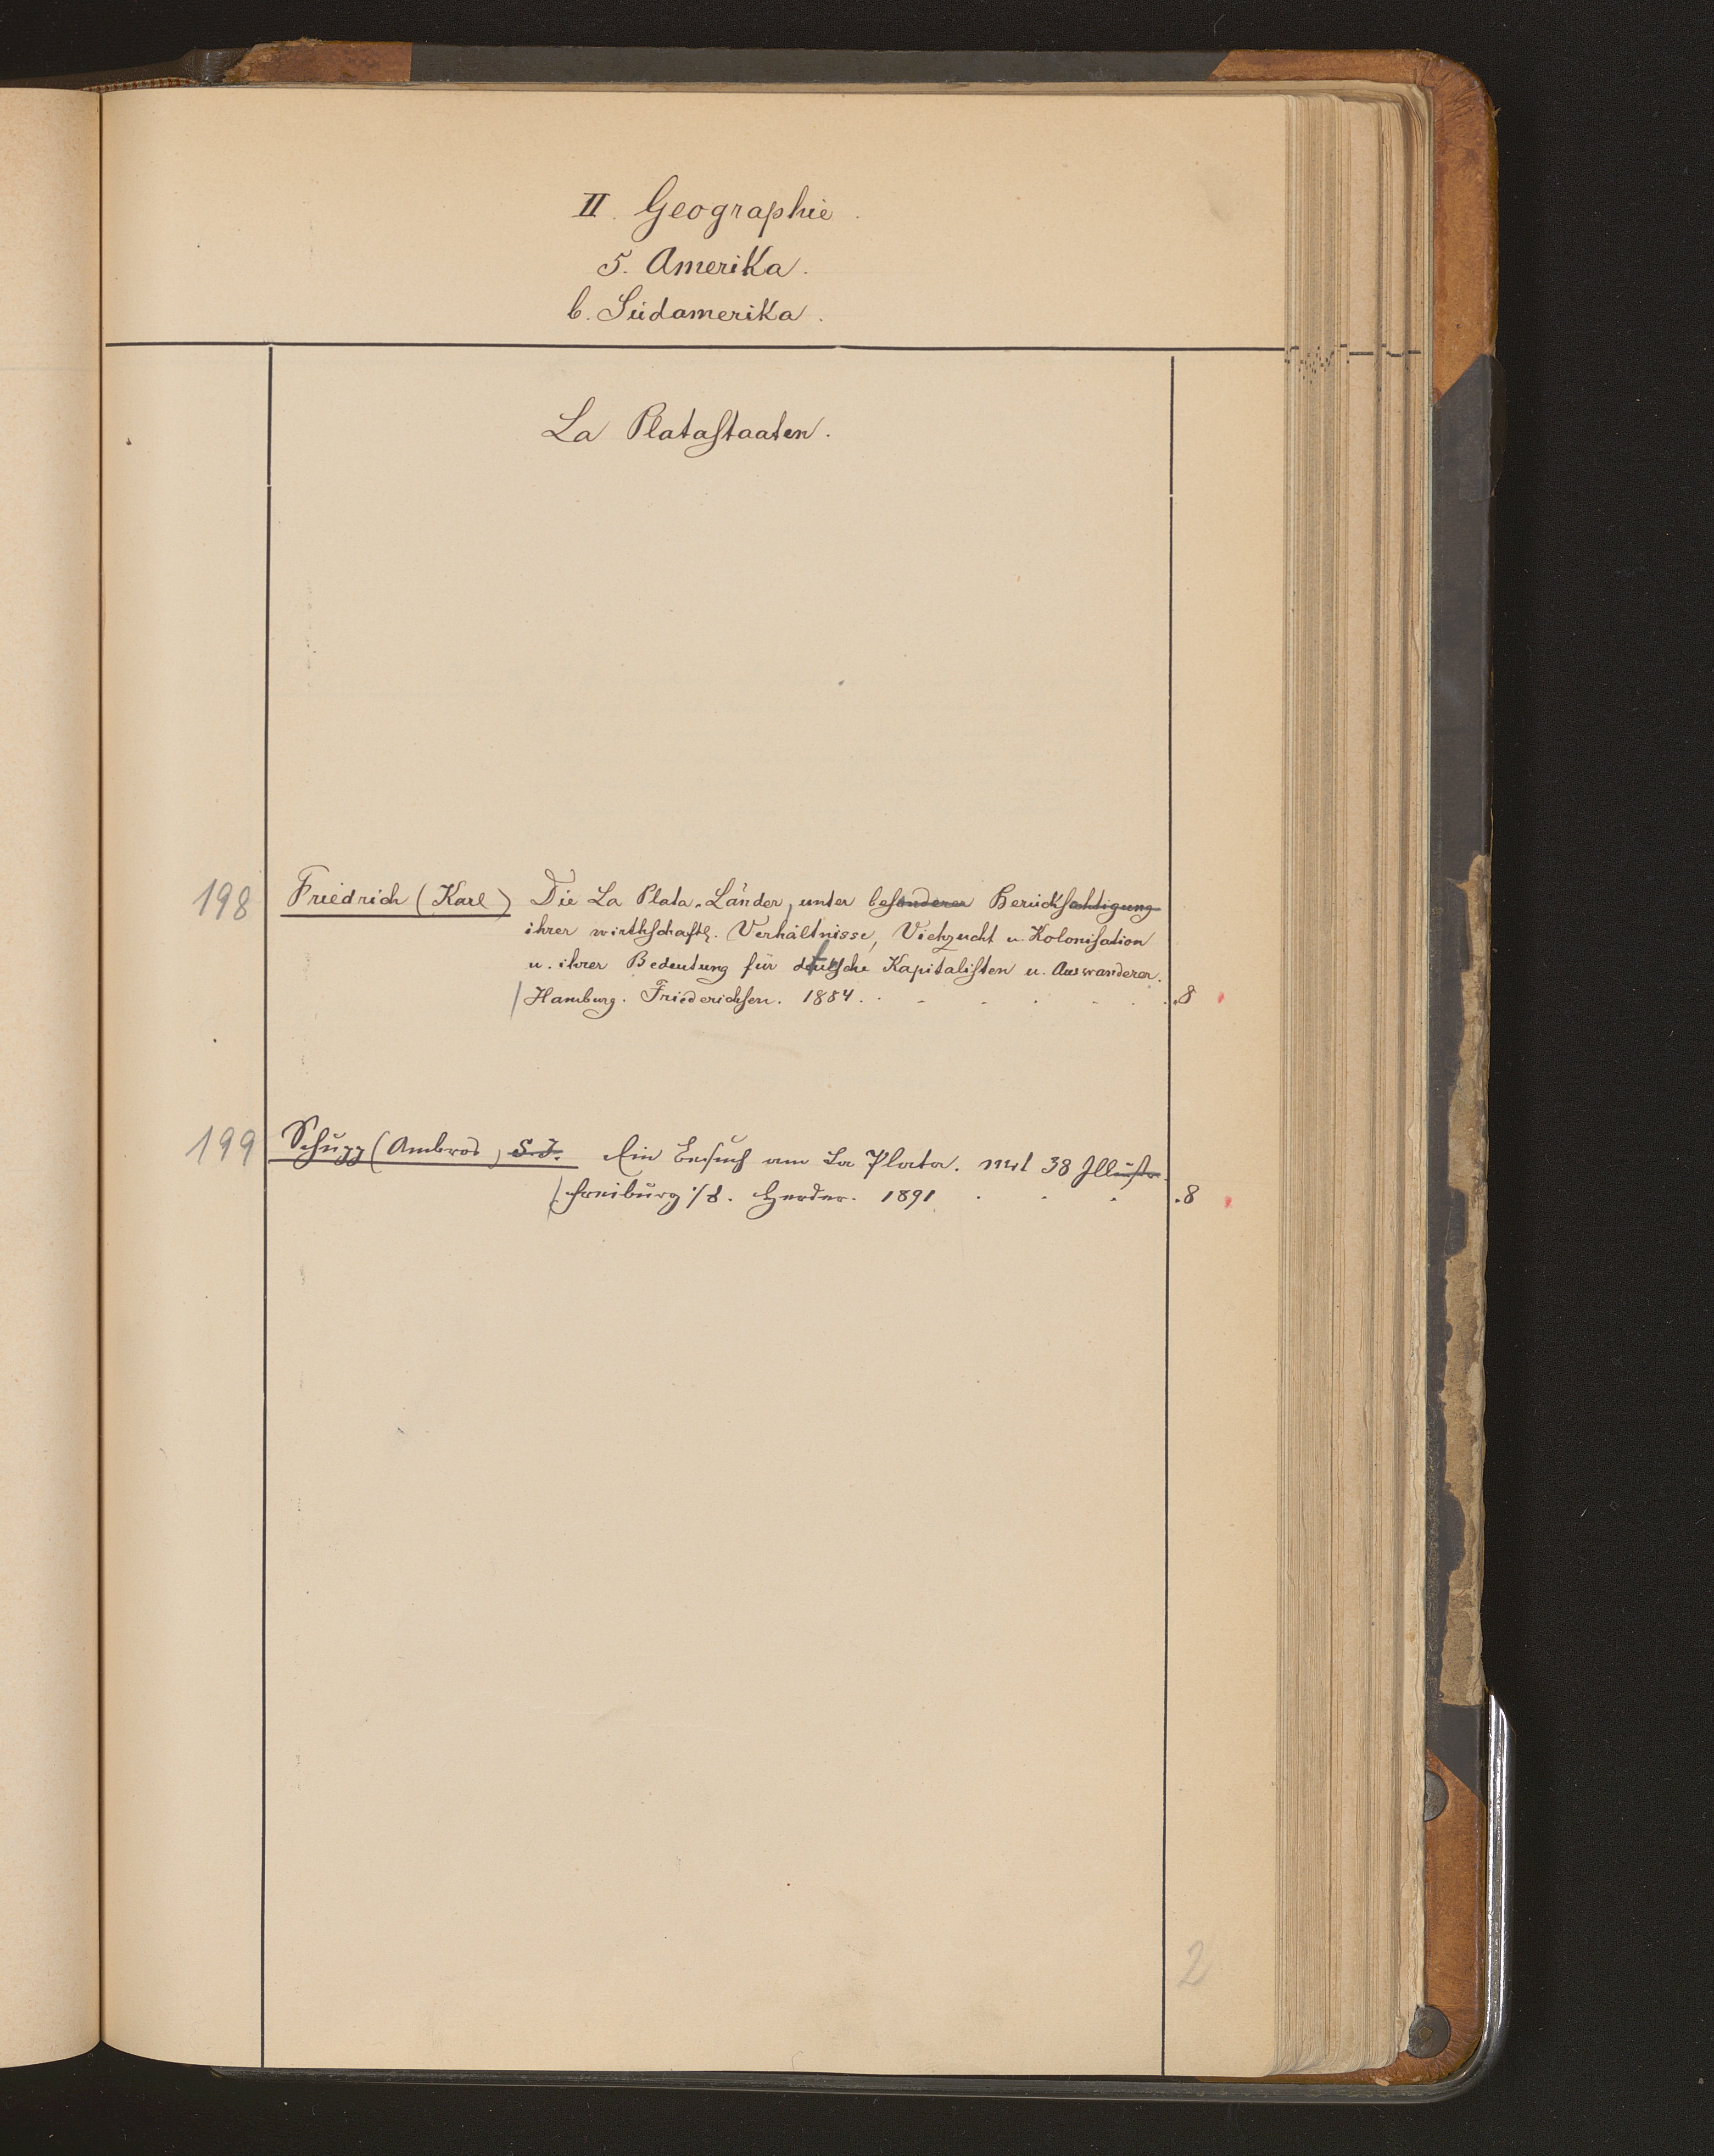 II. Geographie.
5. Amerika.
b. Südamerika.
La Platastaaten.
198 Friedrich (Karl) Die La Plata-Länder, unter besonderer Berücksichtigung
ihrer wirthschaftl. Verhältnisse, Viehzucht u. Kolonisation
u. ihrer Bedeutung für deutsche Kapitalisten u. Auswanderer.
Hamburg. Friederichsen. 1884. 8
199 Schupp (Ambros) S. J. Ein Besuch am La Plata. Mit 38 Illustr.
Freiburg i/B. Herder. 1891 8
2